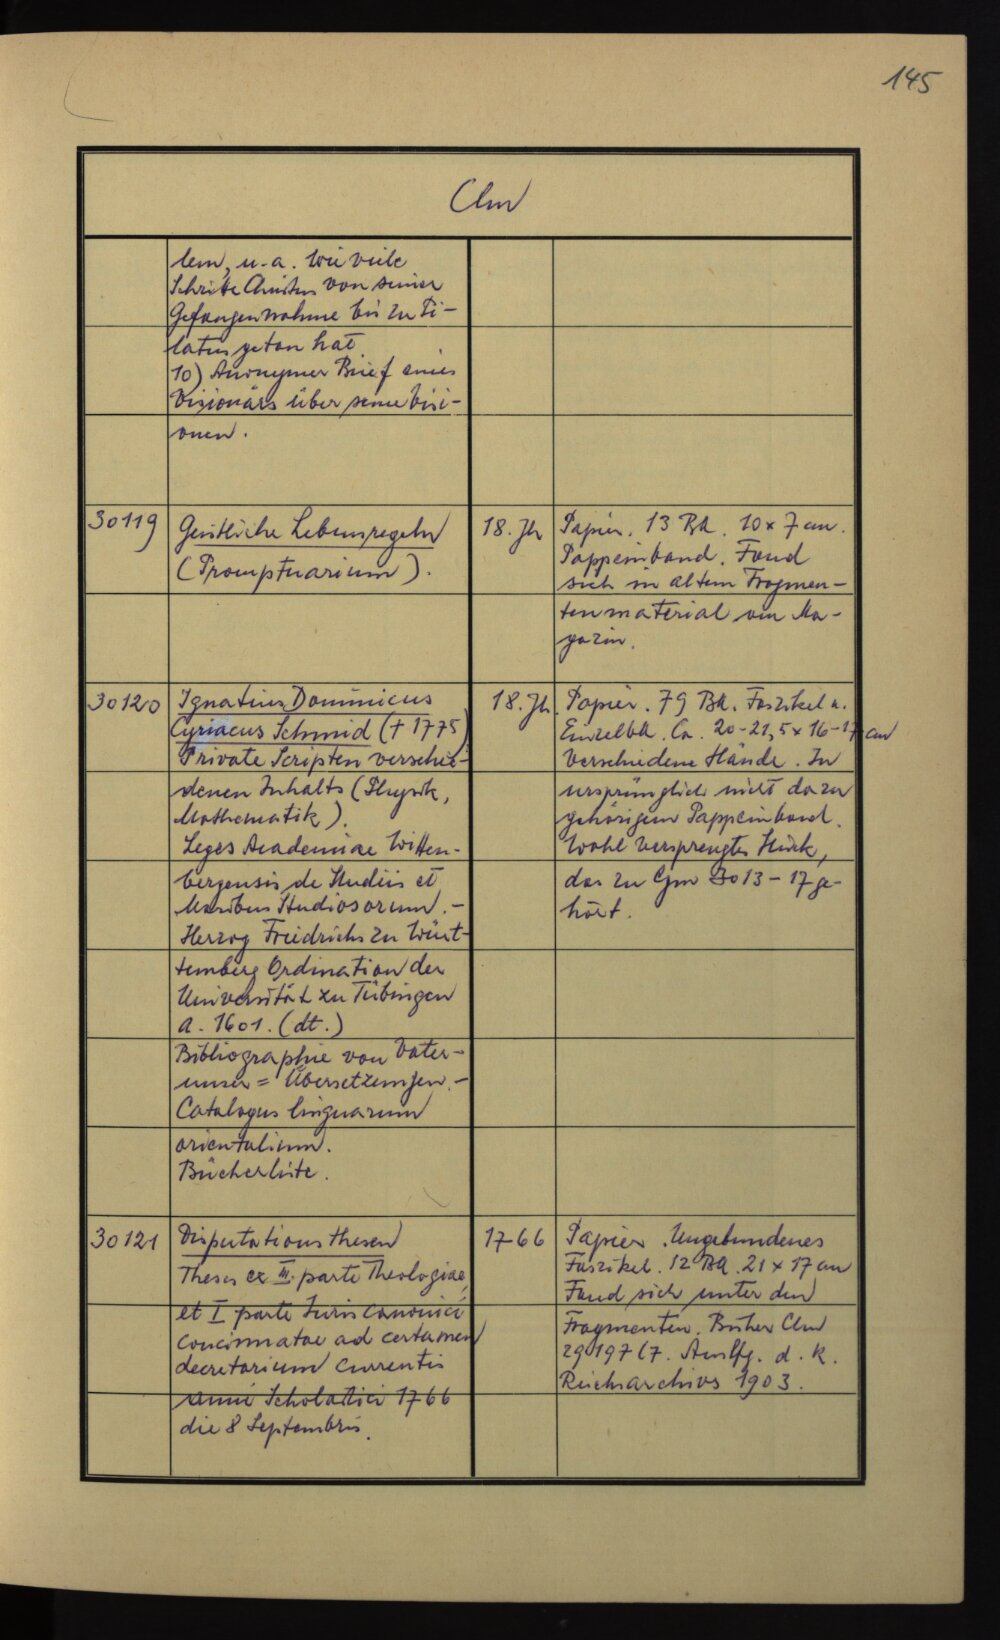 145
Clm
lem, u. a. wie viele
Schritte Christus von seiner
Gefangennahme bis zu Pi-
latus getan hat
10) Anonymer Brief eines
Visionärs über seine Visi-
onen.
30119
Geistliche Lebensregeln
(Promptuarium).
18. Jh
Papier. 13 Bll. 10 x 7 cm.
Pappeinband. Fand
sich in altem Fragmen-
tenmaterial im Ma-
gazin.
30120
Ignatius Dominicus
Cyriacus Schmid († 1775)
Private Scripten verschie-
denen Inhalts (Physik,
Mathematik).
Leges Academiae Witten-
bergensis de Studiis et
Moribus Studiosorum. -
Herzog Friedrichs zu Würt-
temberg Ordination der
Universität zu Tübingen
a. 1601. (dt.)
Bibliographie von Vater-
unser = Übersetzungen. -
Catalogus linguarum
orientalium.
Bücherliste.
18. Jh.
Papier. 79 Bll. Faszikel u.
Einzelbll. Ca. 20-21,5 x 16-17 cm
Verschiedene Hände. In
ursprünglich nicht dazu
gehörigem Pappeinband.
Wohl versprengtes Stück,
das zu Cgm 3013-17 ge-
hört.
30121
Disputationsthesen
Theses ex III. parte Theologiae
et I parte Iuris canonici
concinnatae ad certamen
decretorium currentis
anni Scholastici 1766
die 8 Septembris.
1766
Papier. Ungebundenes
Faszikel. 12 Bll. 21 x 17 cm
Fand sich unter den
Fragmenten. Bisher Clm
29197 (7. Auslfg. d. k.
Reichsarchivs 1903.